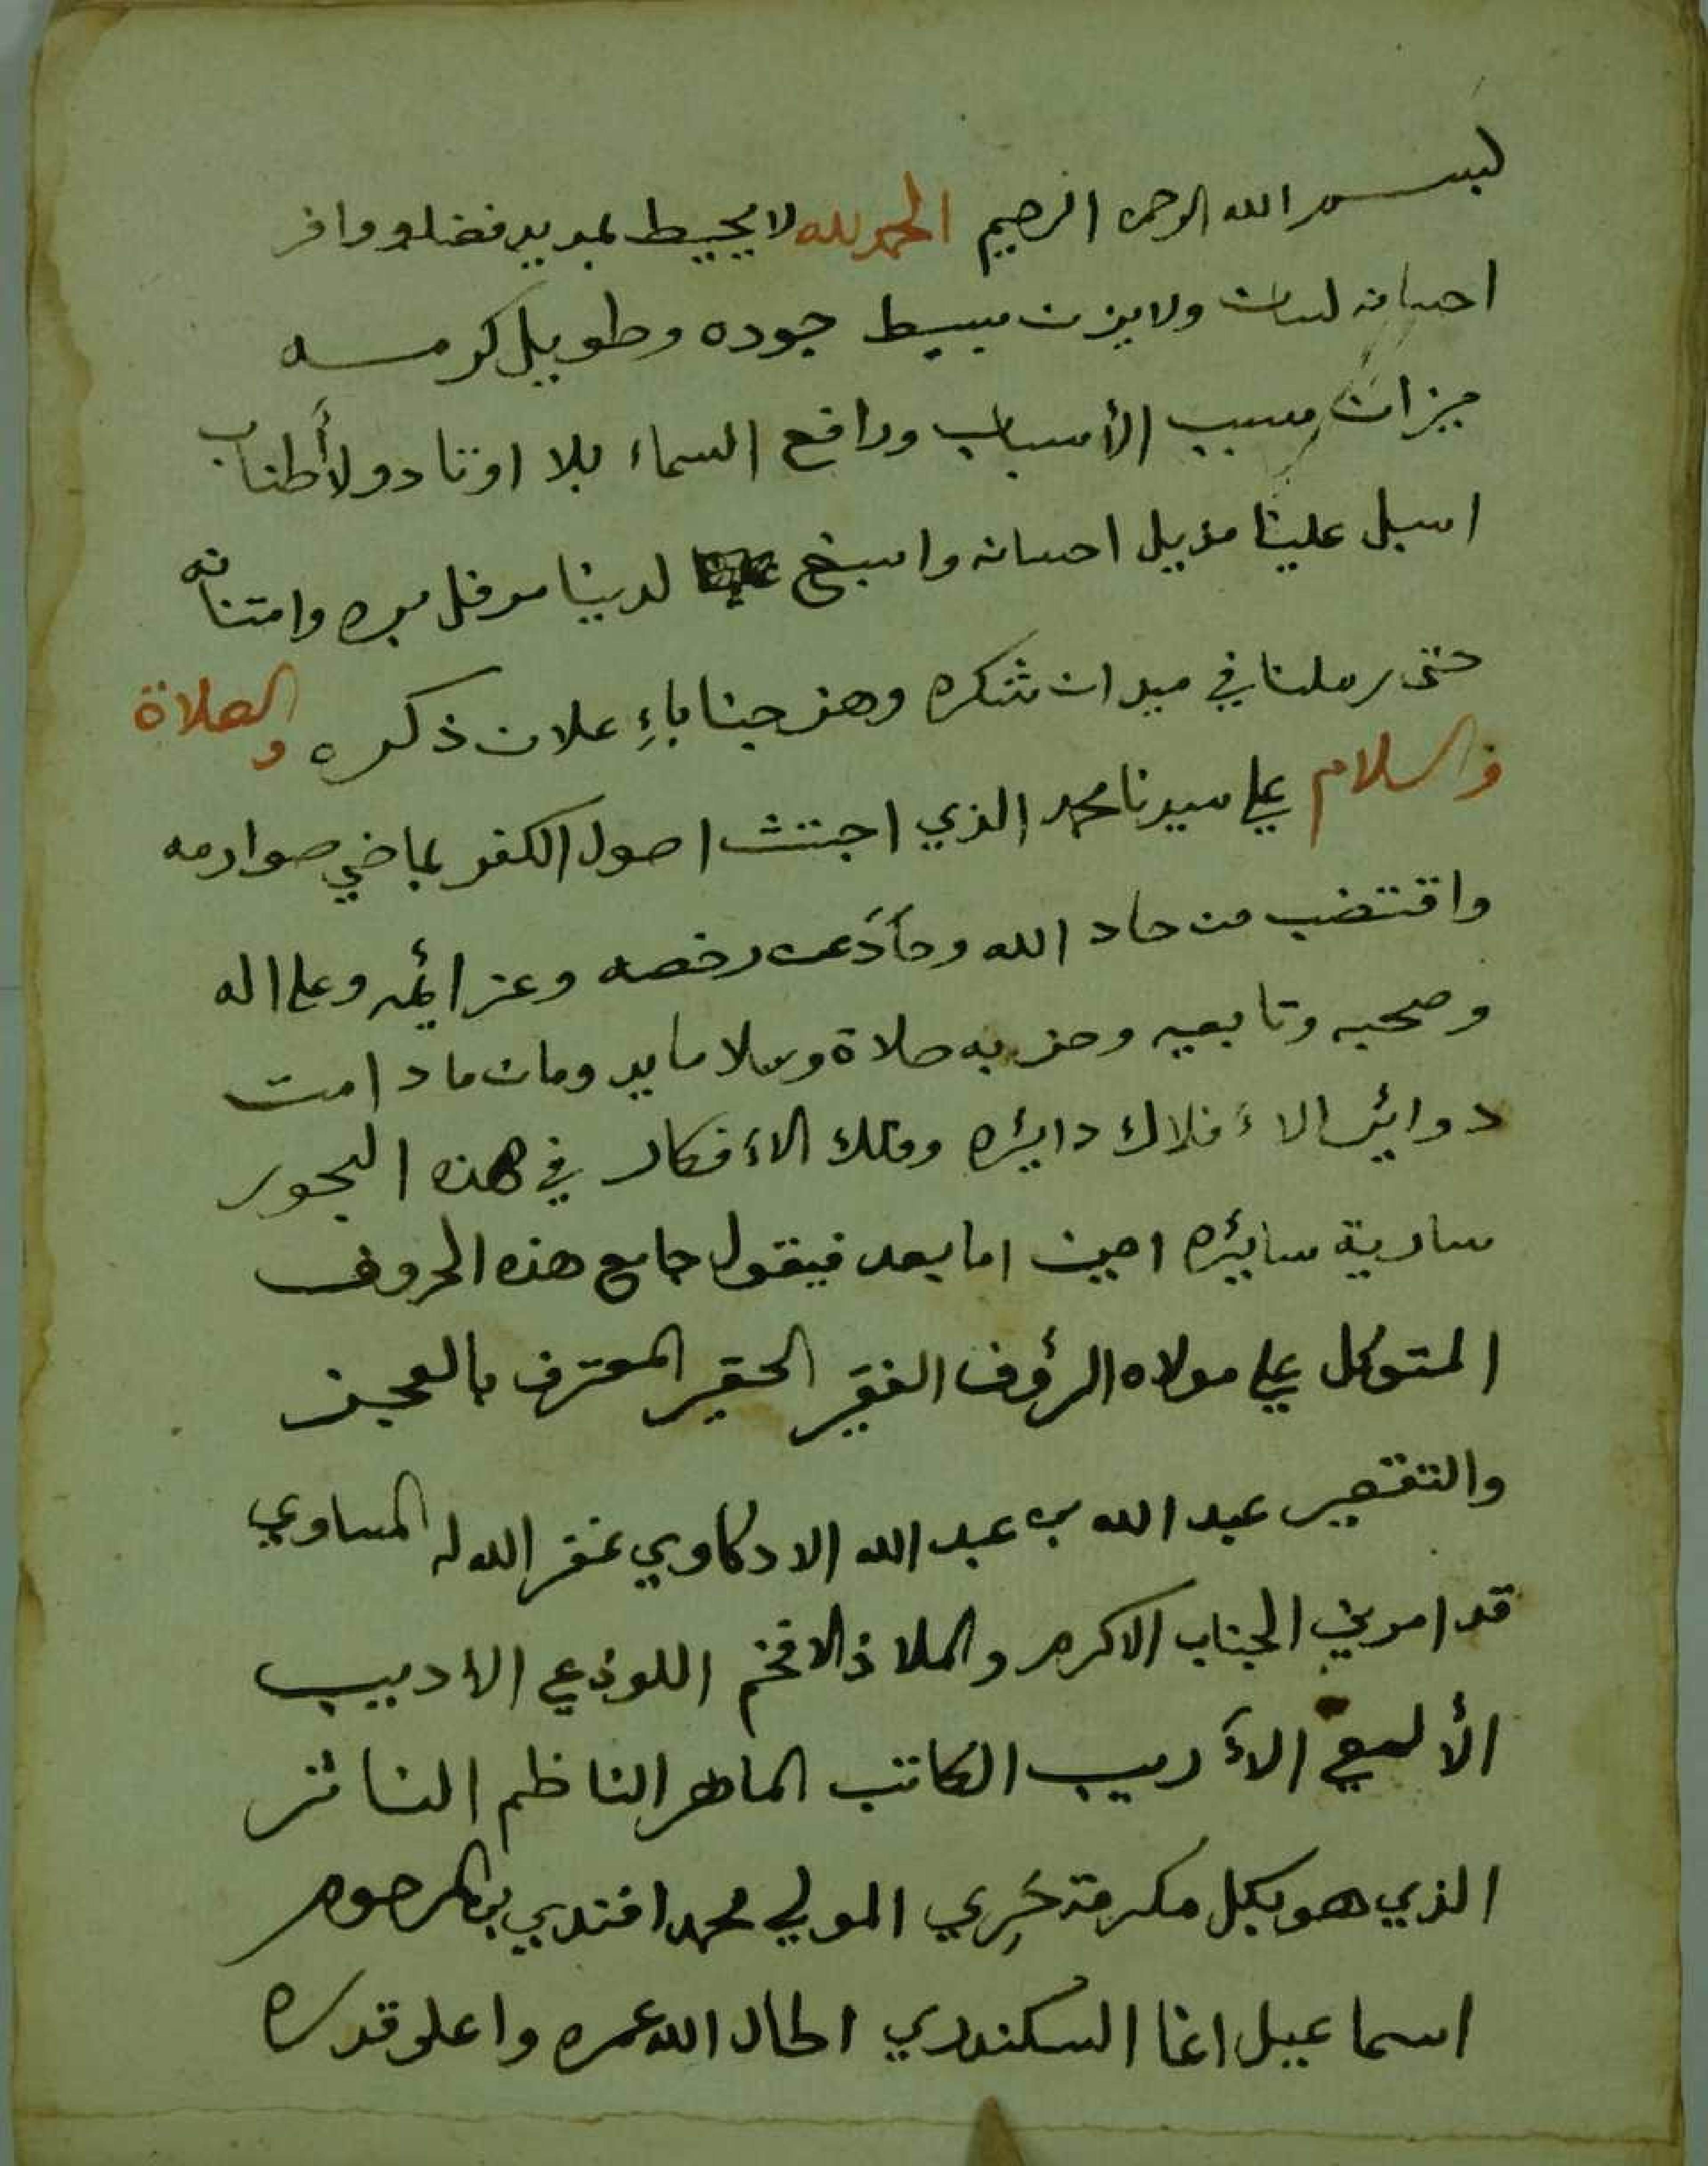 بسم الله الرحمن الرحيم الحمد لله لا يحيط بمديد فضله ووافر
احسانه لسان ولا يزن بسيط جوده وطويل كرمه
ميزان مسبب الأسباب ورافع السماء بلا اوتاد ولا أطناب
اسبل علينا مذيل احسانه واسبغ لدينا مرفل بره وامتنانه
حتى رملنا في ميدان شكره وهزجنا باءِعلان ذكره والصلاة
والسلام علي سيدنا محمد الذي اجتث اصول الكفر بماضي صوارمه
واقتضب من حاد الله وحاَدَ عن رخصه وعزائمه وعلى اله
وصحبه وتابعيه وحزبه صلاة وسلاما يدومان ما دامت
دوائر الاءَفلاك دايره وفلك الاءَفكار في هذه البحور
سارية سائره امين اما بعد فيقول جامع هذه الحروف
المتوكل علي مولاه الرؤف الفقير الحقير المعترف بالعجز
والتقصير عبد الله بن عبد الله الادكاوي غفر الله له المساوي
قد امرني الجناب الاكرم والملاذ الافخم اللوذعي الاديب
الألمعي الاءَريب الكاتب الماهر الناظم الناثر
الذي هو بكل مكرمة حَرِي المولي محمد افندي بن المرحوم
اسماعيل اغا السكندري اطال الله عمره واعلى قدره